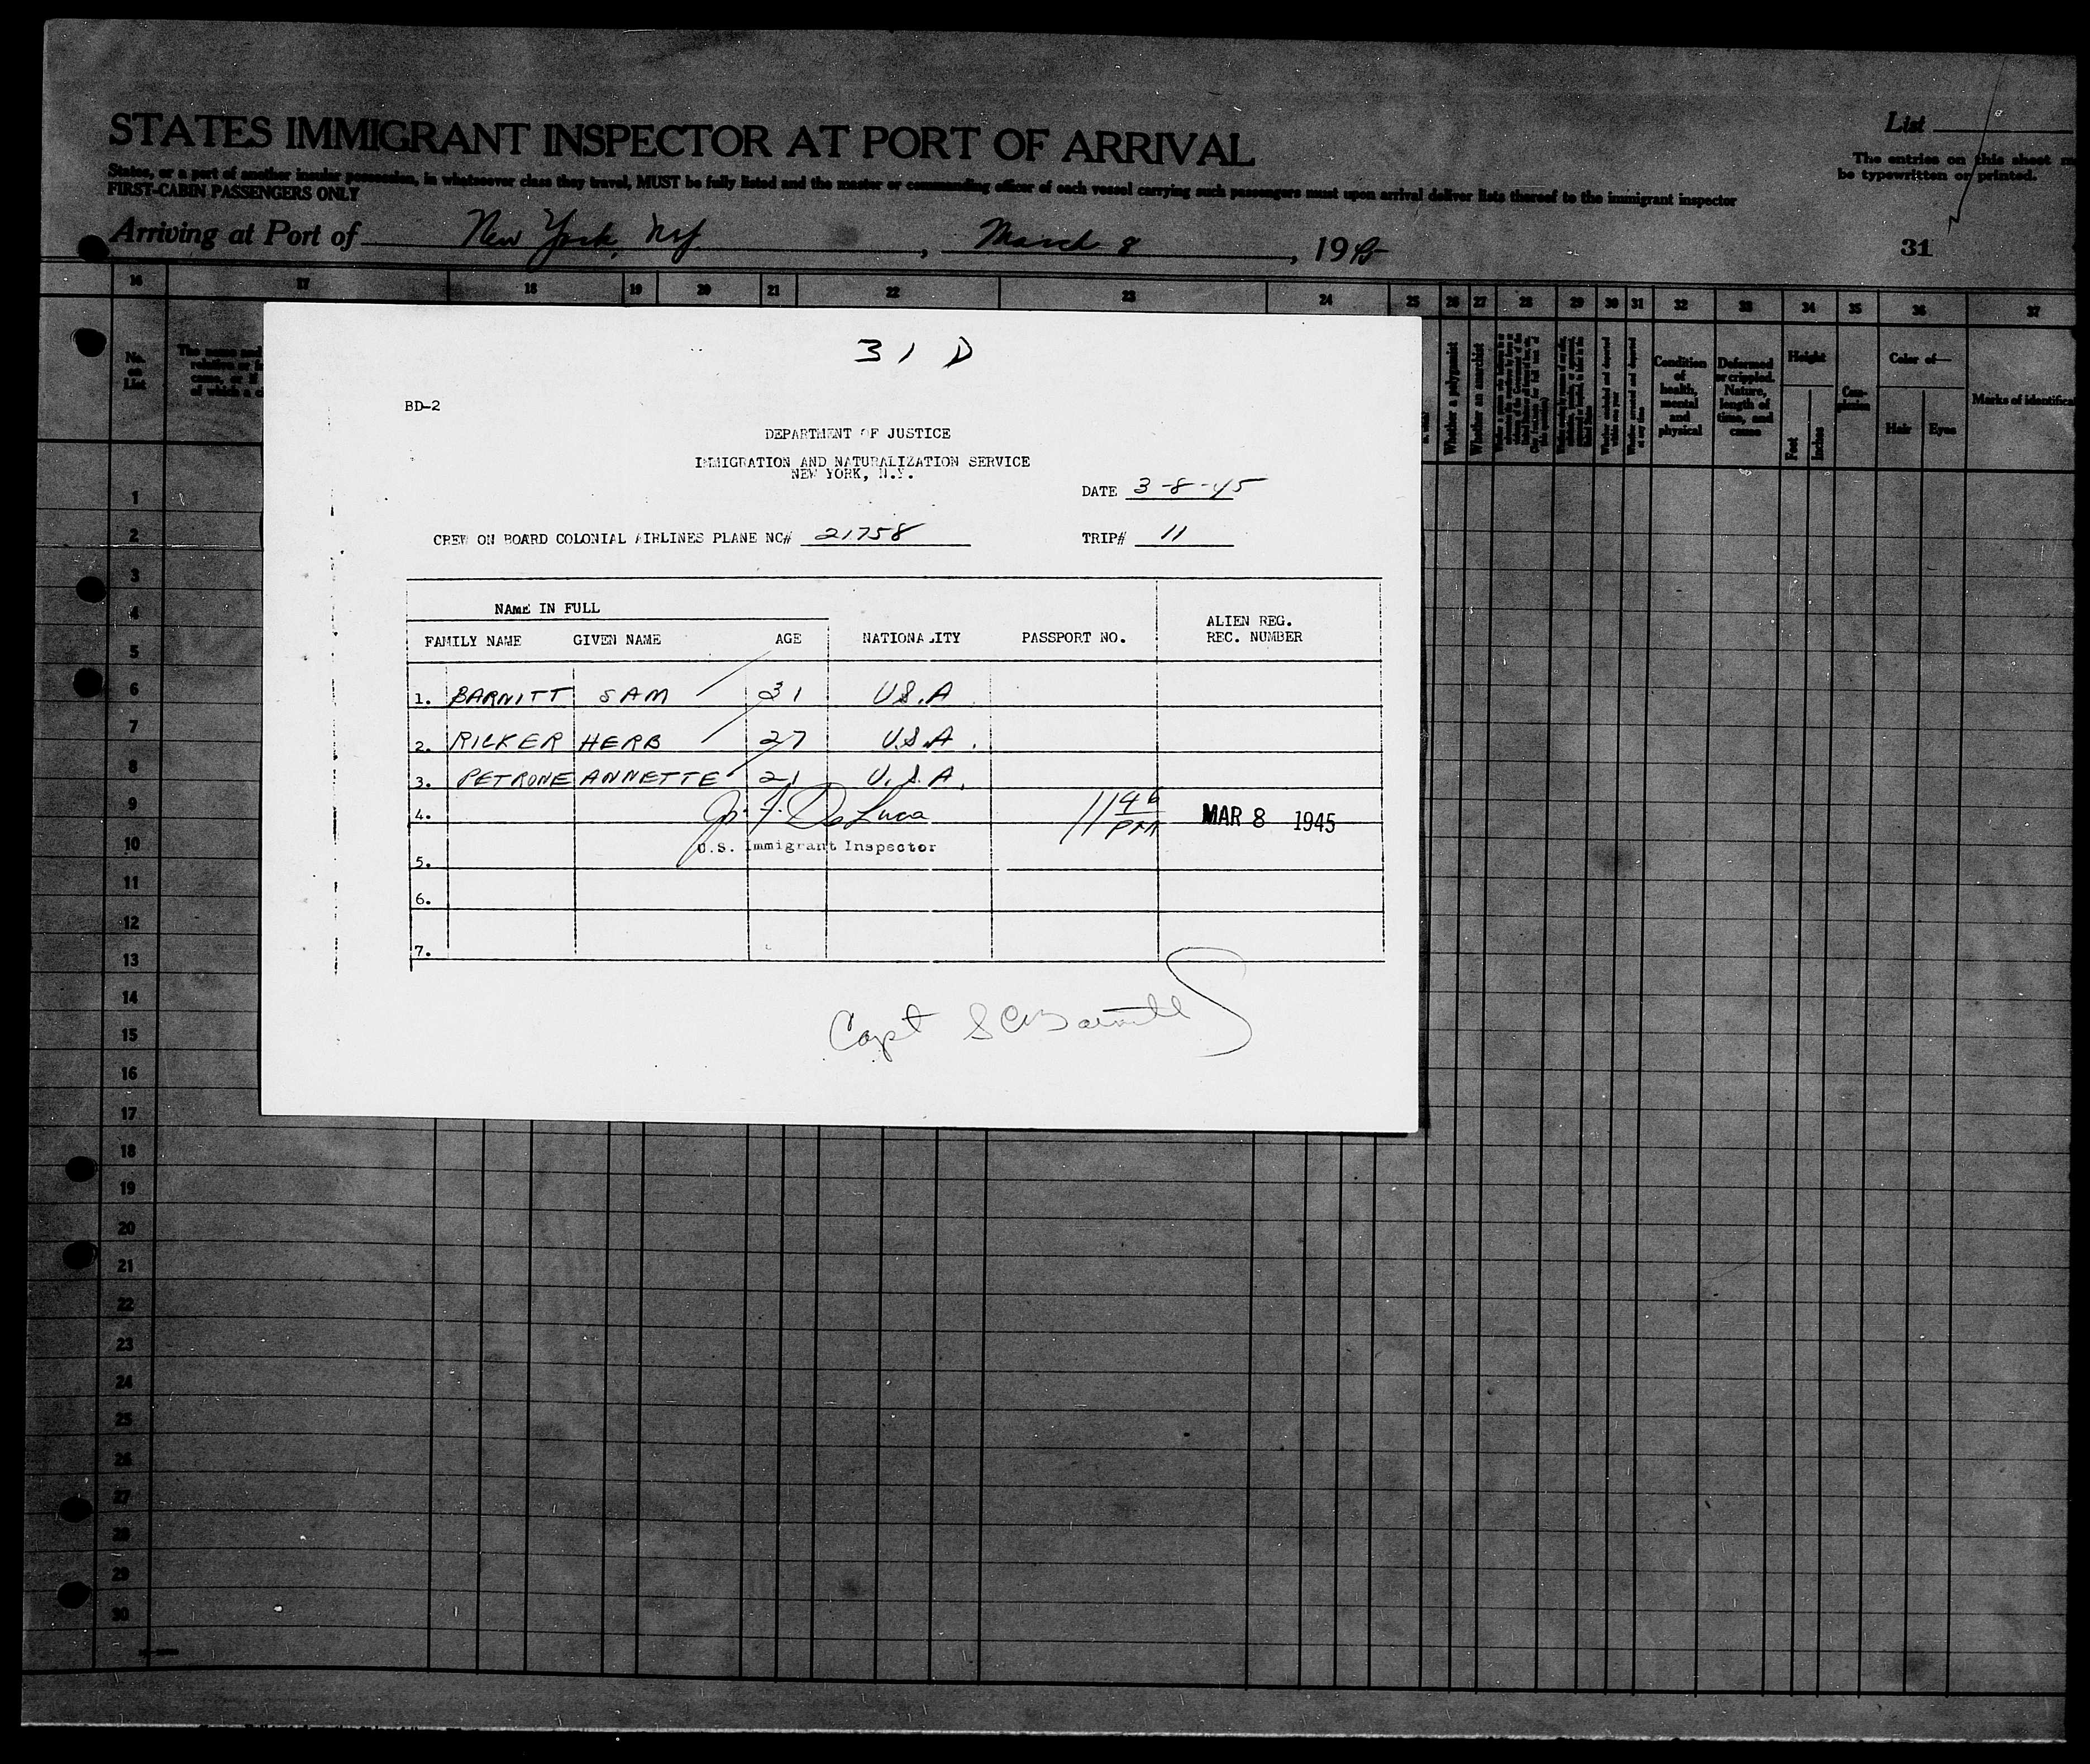 STATES IMMIGRANT INSPECTOR AT PORT OF ARRIVAL
List
States, or a port of another insular possession, in whatsoever class they travel, MUST be fully listed and the master or commanding officer of each vessel carrying such passengers must upon arrival deliver lists thereof to the immigrant inspector
FIRST-CABIN PASSENGERS ONLY
The entries on this sheet m
be typewritten or printed.
Arriving at Port of New York, NY, March 8, 1945
31
16 17 18 19 20 21 22 23 24 25 26 27 28 29 30 31 32 33 34 35 36 37
No. on List
Whether a polygamist
Whether an anarchist
Condition of health, mental and physical
Deformed or crippled. Nature, length of time, and cause
Height
Feet Inches
Complexion
Color of—
Hair Eyes
Marks of identifica
31 D
BD-2
DEPARTMENT OF JUSTICE
IMMIGRATION AND NATURALIZATION SERVICE
NEW YORK, N.Y.
DATE 3-8-45
CREW ON BOARD COLONIAL AIRLINES PLANE NC# 21758 TRIP# 11
NAME IN FULL
FAMILY NAME GIVEN NAME AGE NATIONALITY PASSPORT NO. ALIEN REG. REC. NUMBER
1. BARNITT SAM 31 U.S.A
2. RICKER HERB 27 U.S.A.
3. PETRONE ANNETTE 21 U.S.A.
4. De Luca 11 46 PM MAR 8 1945
U.S. Immigrant Inspector
5.
6.
7.
Capt S C Barnitt
1
2
3
4
5
6
7
8
9
10
11
12
13
14
15
16
17
18
19
20
21
22
23
24
25
26
27
28
29
30